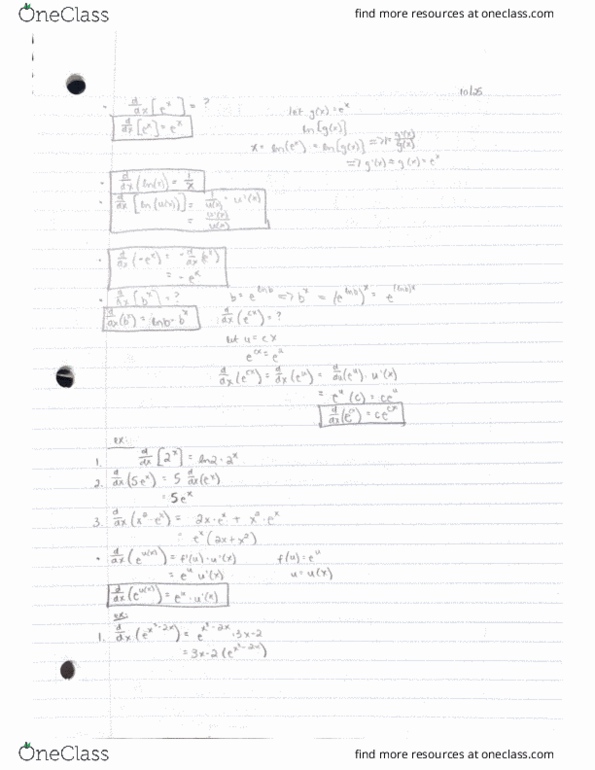 OneClass
find more resources at oneclass.com
10/25
d/dx [e^x] = ?
d/dx [e^x] = e^x
let g(x) = e^x
ln[g(x)]
x = ln(e^x) = ln[g(x)] => 1 = g'(x)/g(x)
=> g'(x) = g(x) = e^x
d/dx (ln(x)) = 1/x
d/dx [ln(u(x))] = 1/u(x) · u'(x)
= u'(x)/u(x)
d/dx (-e^x) = - d/dx (e^x)
= -e^x
d/dx [b^x] = ?
b = e^lnb => b^x = (e^lnb)^x = e^(lnb)x
d/dx (b^x) = lnb · b^x
d/dx (e^cx) = ?
let u = cx
e^cx = e^u
d/dx (e^cx) = d/dx (e^u) = d/du (e^u) · u'(x)
= e^u (c) = ce^u
d/dx (e^cx) = ce^cx
ex:
1. d/dx [2^x] = ln2 · 2^x
2. d/dx (5e^x) = 5 d/dx (e^x)
= 5e^x
3. d/dx (x^2 · e^x) = 2x · e^x + x^2 · e^x
= e^x (2x + x^2)
d/dx (e^u(x)) = f'(u) · u'(x)
f(u) = e^u
= e^u u'(x)
u = u(x)
d/dx (e^u(x)) = e^u · u'(x)
ex:
= 3x-2 (
OneClass
find more resources at oneclass.com